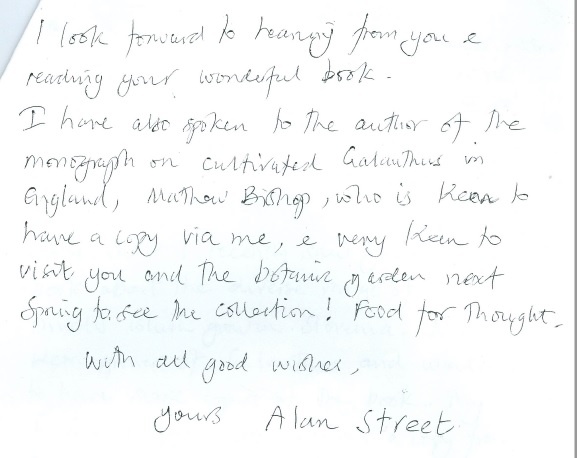 I look forward to hearing from you &
reading your wonderful book.
I have also spoken to the author of the
monograph on cultivated Galanthus in
England, Matthew Bishop, who is keen to
have a copy via me, & very keen to
visit you and the botanic garden next
Spring to see the collection! Food for Thought.
With all good wishes,
yours Alan Street